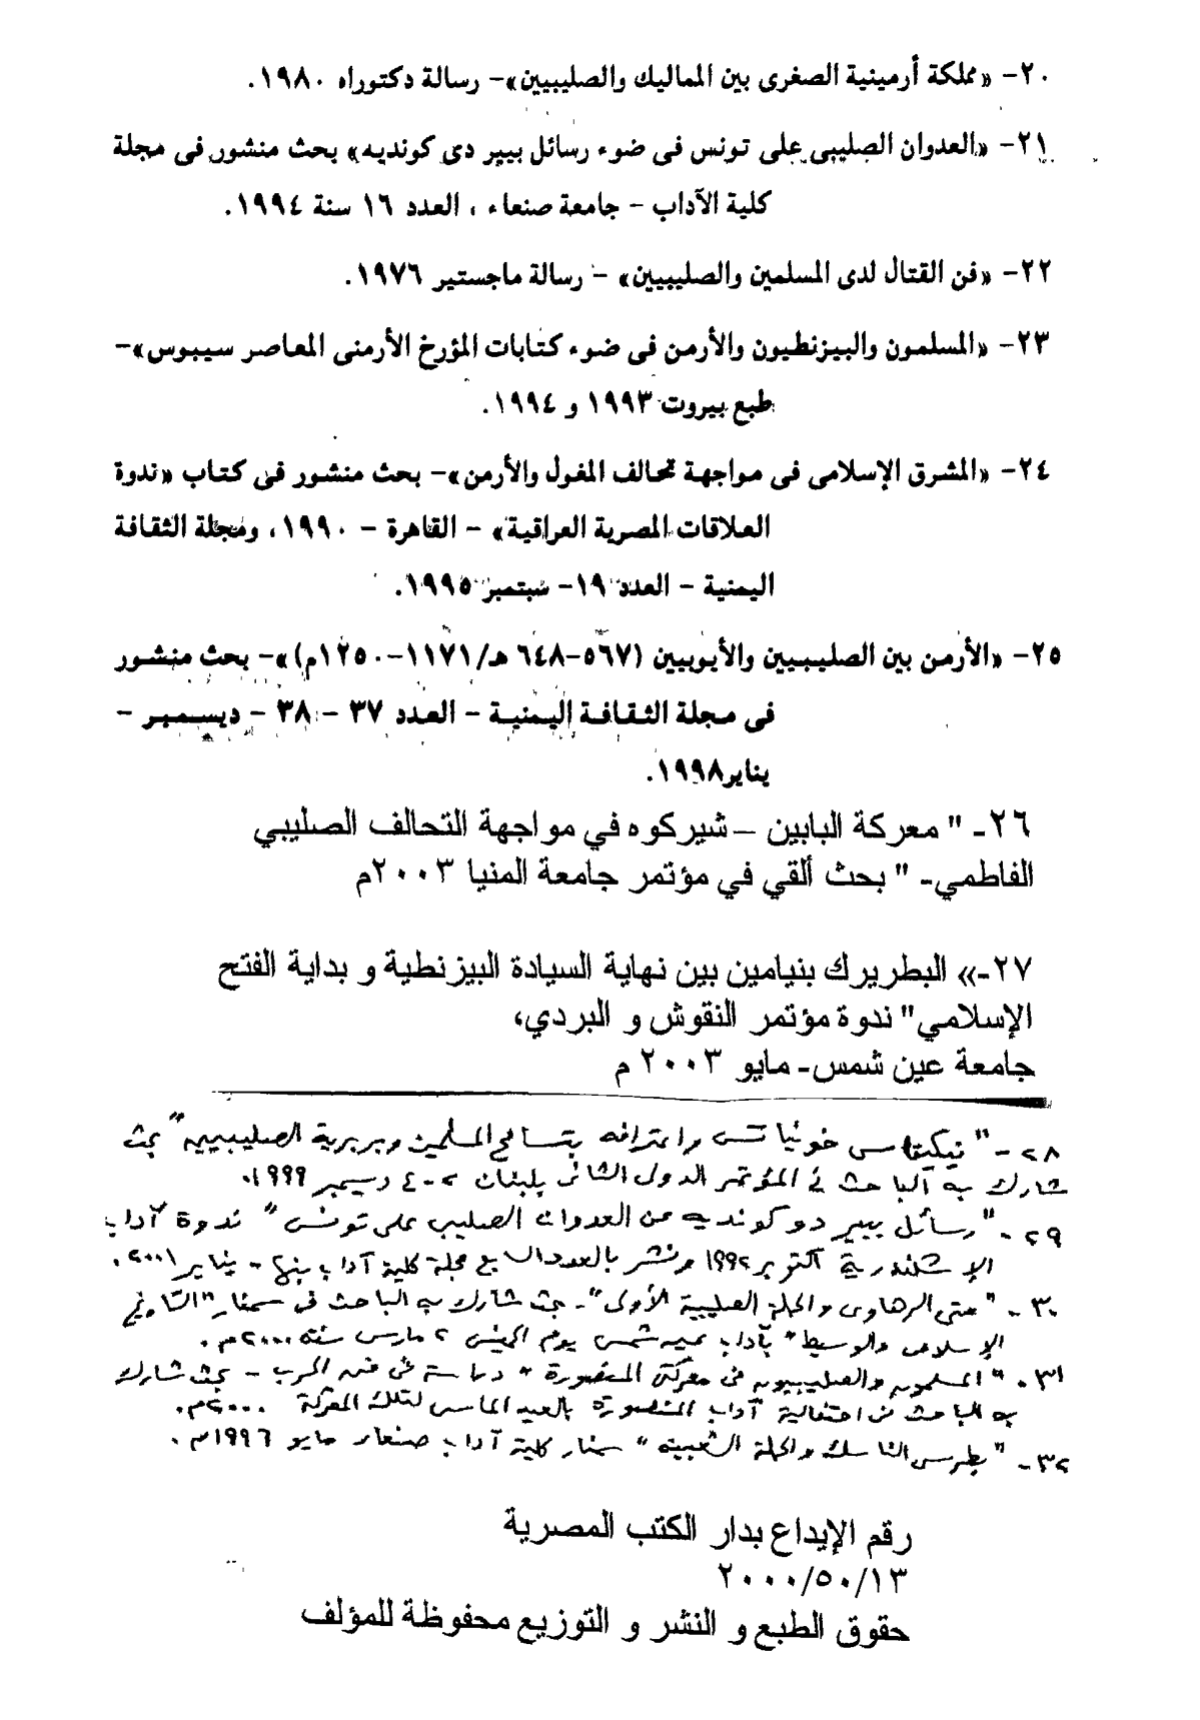 ٢٠- «مملكة أرمينية الصغرى بين المماليك والصليبيين»- رسالة دكتوراه ١٩٨٠.
٢١- «العدوان الصليبى على تونس فى ضوء رسائل بيير دى كونديه» بحث منشور فى مجلة
كلية الآداب - جامعة صنعاء ، العدد ١٦ سنة ١٩٩٤.
٢٢- «فن القتال لدى المسلمين والصليبيين» - رسالة ماجستير ١٩٧٦.
٢٣- «المسلمون والبيزنطيون والأرمن فى ضوء كتابات المؤرخ الأرمنى المعاصر سيبوس»-
طبع بيروت ١٩٩٣ و ١٩٩٤.
٢٤- «المشرق الإسلامى فى مواجهة تحالف المغول والأرمن»- بحث منشور فى كتاب «ندوة
العلاقات المصرية العراقية» - القاهرة - ١٩٩٠، ومجلة الثقافة
اليمنية - العدد ١٩- سبتمبر ١٩٩٥.
٢٥- «الأرمن بين الصليبيين والأيوبيين (٥٦٧-٦٤٨ هـ/١١٧١-١٢٥٠م)»- بحث منشور
فى مجلة الثقافة اليمنية - العدد ٣٧ - ٣٨ - ديسمبر -
يناير ١٩٩٨.
٢٦- " معركة البابين – شيركوه في مواجهة التحالف الصليبي
الفاطمي- " بحث ألقي في مؤتمر جامعة المنيا ٢٠٠٣م
٢٧-« البطريرك بنيامين بين نهاية السيادة البيزنطية و بداية الفتح
الإسلامي" ندوة مؤتمر النقوش و البردي،
جامعة عين شمس- مايو ٢٠٠٣ م
٢٨- "نيكيتاس خونياتس واعترافه بتسامح المسلمين وبربرية الصليبيين" بحث
شارك به الباحث فى المؤتمر الدولى الثانى بلبنان ٢-٤ ديسمبر ١٩٩٩.
٢٩- "رسائل بيير دو كونديه عن العدوان الصليبى على تونس" ندوة آداب
الإسكندرية أكتوبر ١٩٩٢ ونشر بالعدد السابع مجلة كلية آداب بنها - يناير ٢٠٠١.
٣٠- "متى الرهاوى والحملة الصليبية الأولى"- بحث شارك به الباحث فى سمنار "التاريخ
الإسلامى والوسيط" بآداب عين شمس يوم الخميس ٢ مارس سنة ٢٠٠٠م.
٣١- "المسلمون والصليبيون فى معركة المنصورة" دراسة فى فن الحرب - بحث شارك
به الباحث فى احتفالية آداب المنصورة بالعيد الماسى لتلك المعركة ٢٠٠٠م.
٣٢- "بطرس الناسك والحملة الشعبية" سمنار كلية آداب صنعاء مايو ١٩٩٦م.
رقم الإيداع بدار الكتب المصرية
٢٠٠٠/٥٠/١٣
حقوق الطبع و النشر و التوزيع محفوظة للمؤلف